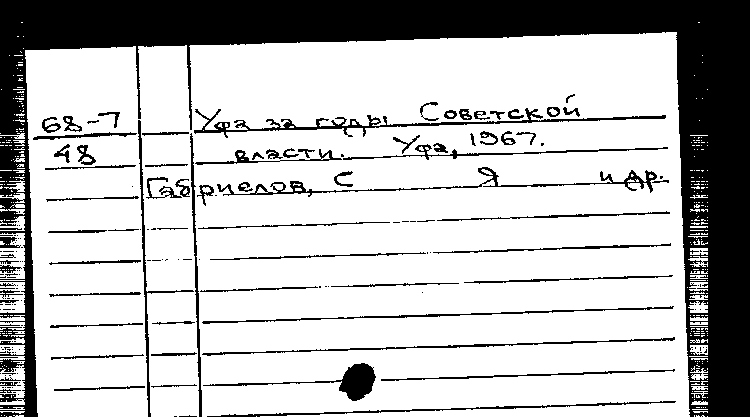 68-7 Уфа за годы Советской
48 власти. Уфа, 1967.
Габриелов, С Я и др.